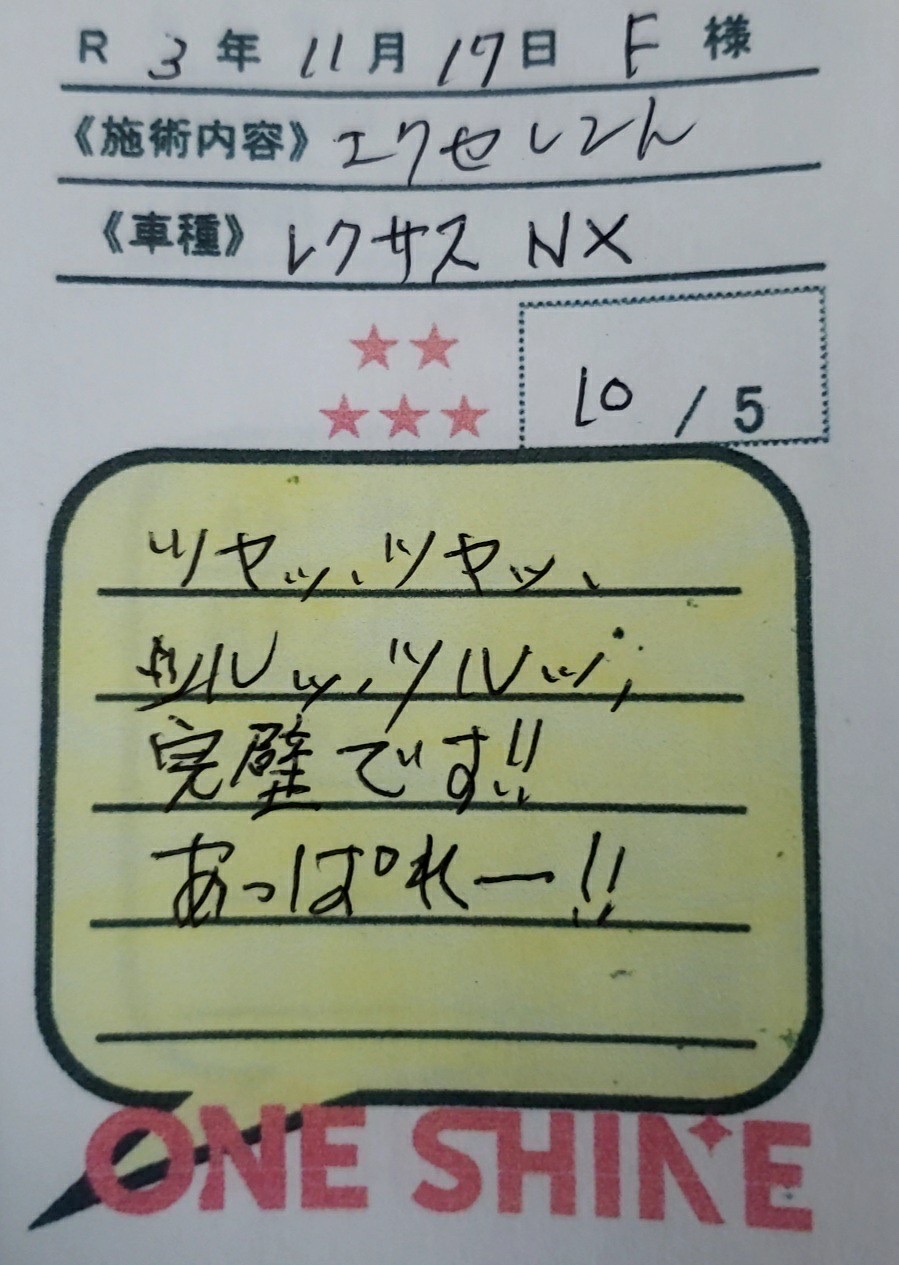 R 3年 11月 17日 F 様
《施術内容》エクセレント
《車種》レクサス NX
★★
★★★
10 / 5
ツヤッ、ツヤッ、
ツルッ、ツルッ、
完璧です!!
あっぱれー!!
ONE SHINE